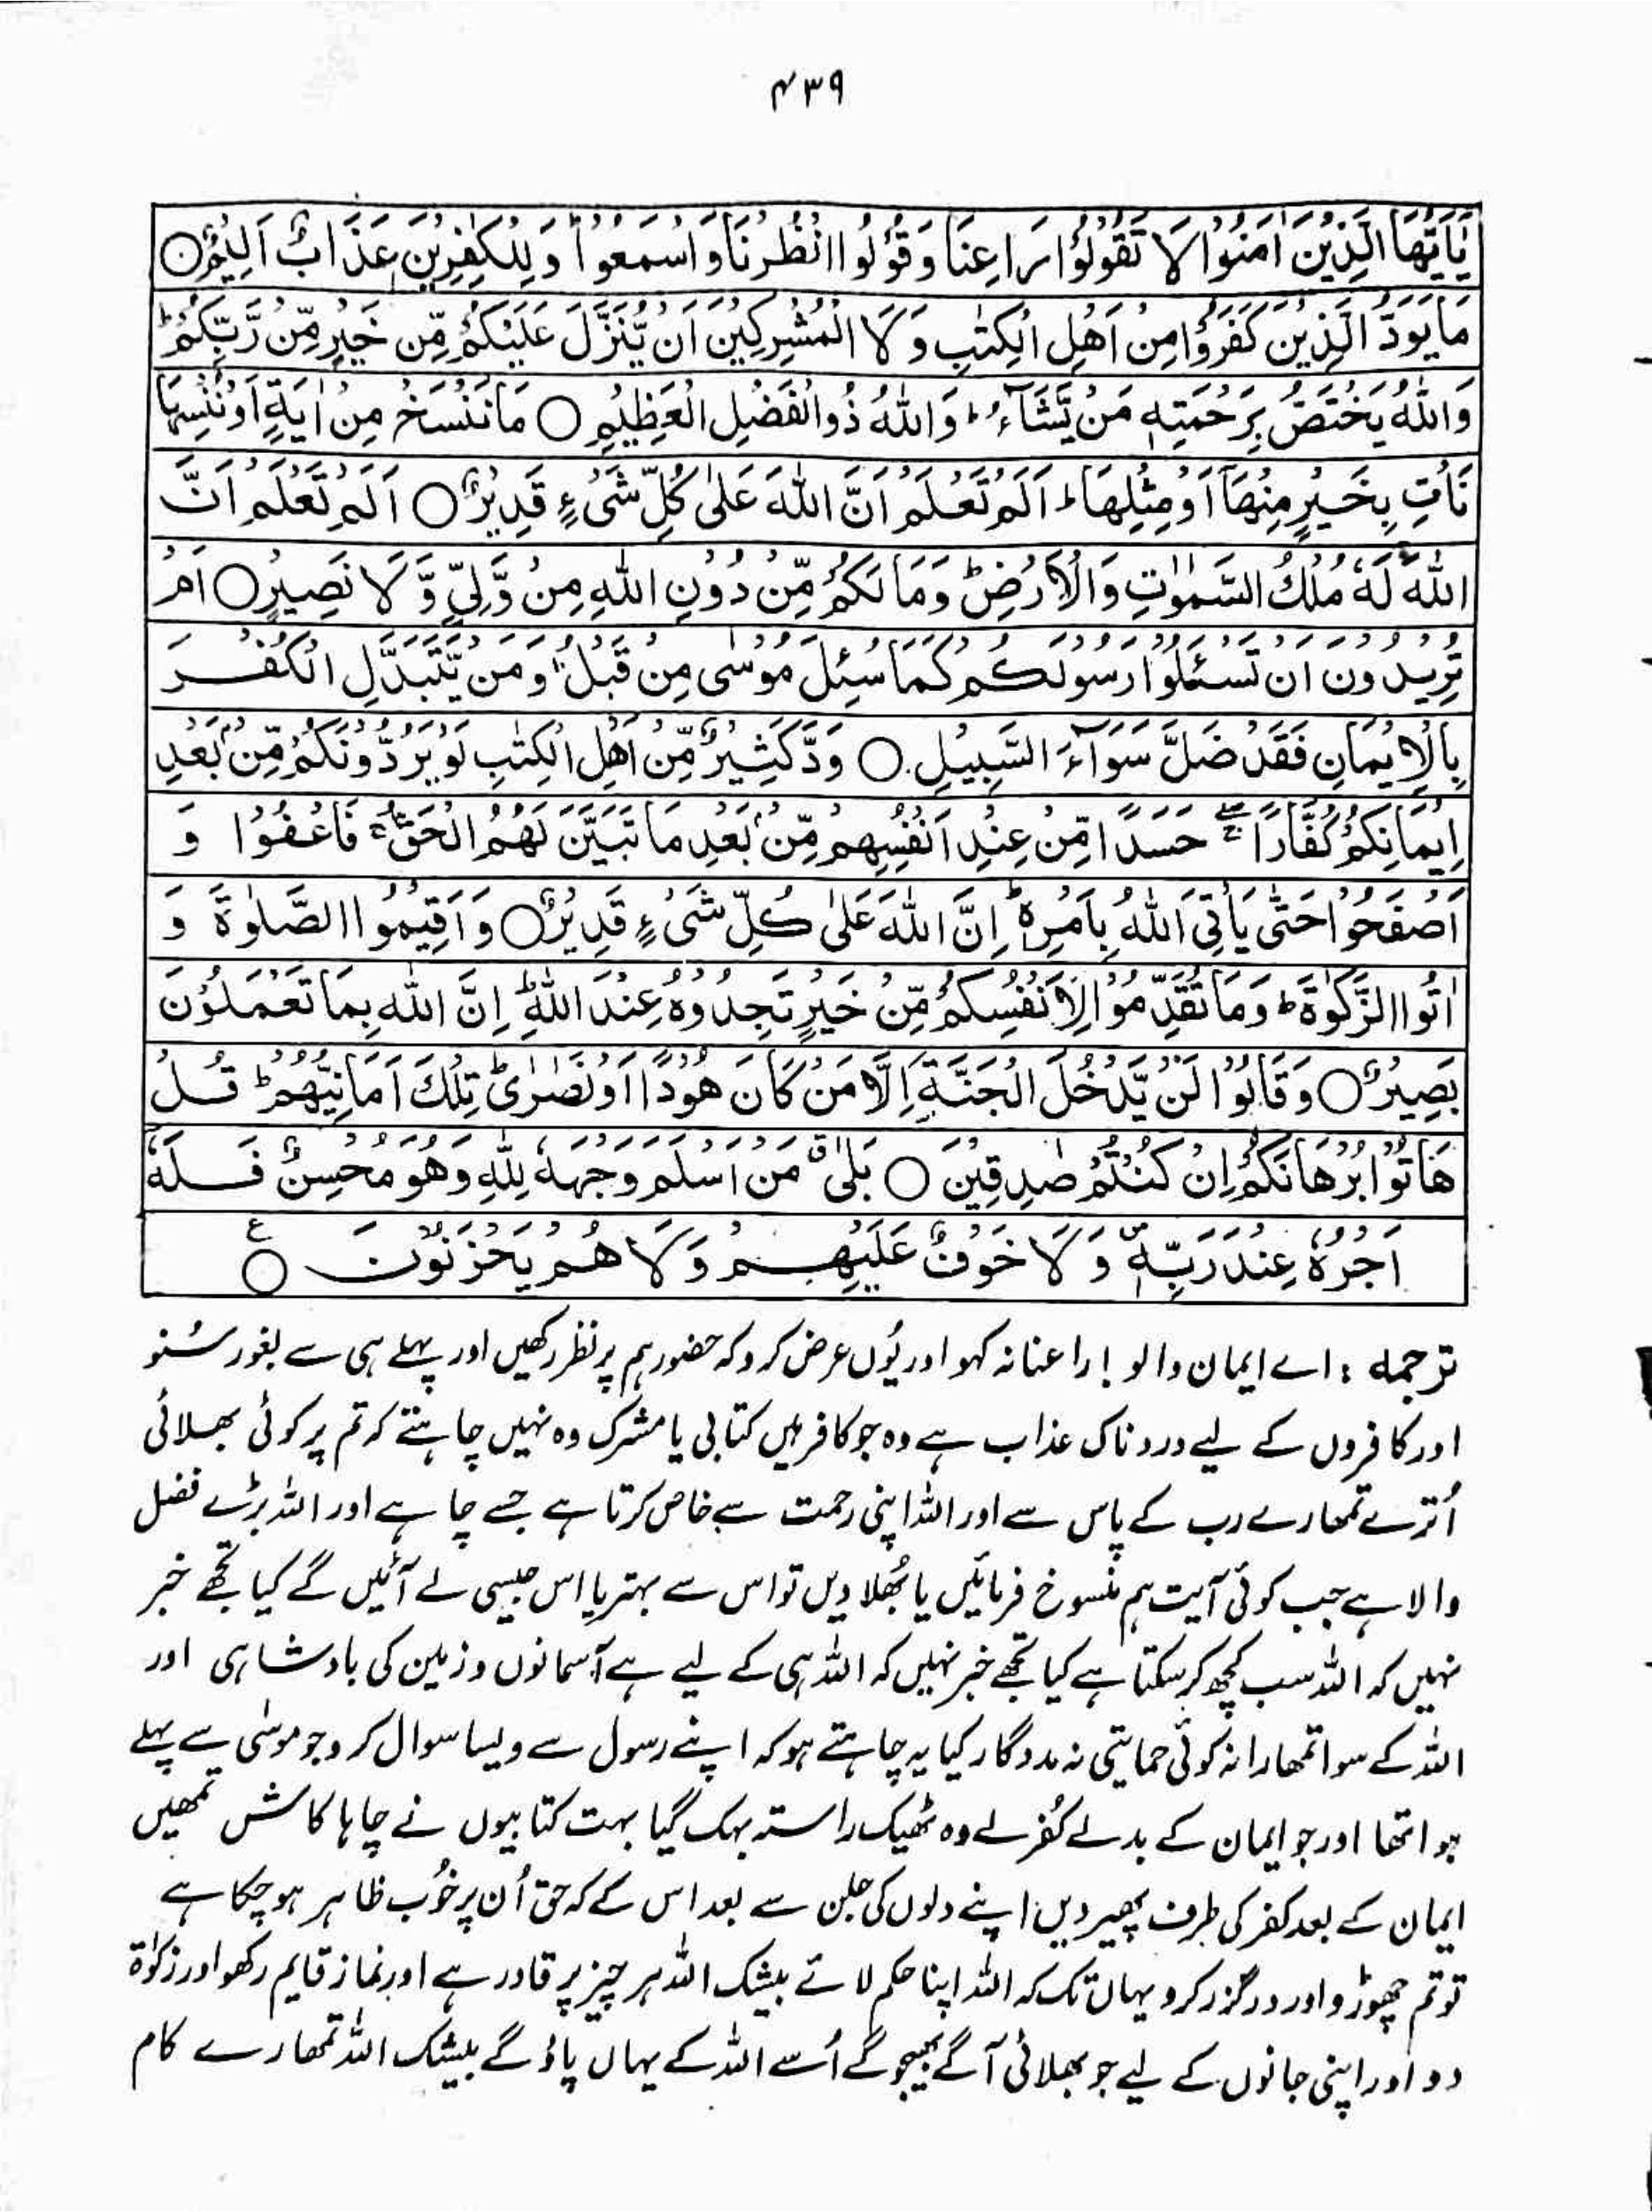 ۴۳۹
یٰۤاَیُّهَا الَّذِیْنَ اٰمَنُوْا لَا تَقُوْلُوْا رَاعِنَا وَ قُوْلُوا انْظُرْنَا وَ اسْمَعُوْاؕ وَ لِلْكٰفِرِیْنَ عَذَابٌ اَلِیْمٌ ○
مَا یَوَدُّ الَّذِیْنَ كَفَرُوْا مِنْ اَهْلِ الْكِتٰبِ وَ لَا الْمُشْرِكِیْنَ اَنْ یُّنَزَّلَ عَلَیْكُمْ مِّنْ خَیْرٍ مِّنْ رَّبِّكُمْؕ
وَ اللّٰهُ یَخْتَصُّ بِرَحْمَتِهٖ مَنْ یَّشَآءُؕ وَ اللّٰهُ ذُو الْفَضْلِ الْعَظِیْمِ ○ مَا نَنْسَخْ مِنْ اٰیَةٍ اَوْ نُنْسِهَا
نَاْتِ بِخَیْرٍ مِّنْهَاۤ اَوْ مِثْلِهَاؕ اَلَمْ تَعْلَمْ اَنَّ اللّٰهَ عَلٰى كُلِّ شَیْءٍ قَدِیْرٌ ○ اَلَمْ تَعْلَمْ اَنَّ
اللّٰهَ لَهٗ مُلْكُ السَّمٰوٰتِ وَ الْاَرْضِؕ وَ مَا لَكُمْ مِّنْ دُوْنِ اللّٰهِ مِنْ وَّلِیٍّ وَّ لَا نَصِیْرٍ ○ اَمْ
تُرِیْدُوْنَ اَنْ تَسْـَٔلُوْا رَسُوْلَكُمْ كَمَا سُىِٕلَ مُوْسٰى مِنْ قَبْلُؕ وَ مَنْ یَّتَبَدَّلِ الْكُفْرَ
بِالْاِیْمَانِ فَقَدْ ضَلَّ سَوَآءَ السَّبِیْلِ ○ وَدَّ كَثِیْرٌ مِّنْ اَهْلِ الْكِتٰبِ لَوْ یَرُدُّوْنَكُمْ مِّنْۢ بَعْدِ
اِیْمَانِكُمْ كُفَّارًا ۚۖ حَسَدًا مِّنْ عِنْدِ اَنْفُسِهِمْ مِّنْۢ بَعْدِ مَا تَبَیَّنَ لَهُمُ الْحَقُّۚ فَاعْفُوْا وَ
اصْفَحُوْا حَتّٰى یَاْتِیَ اللّٰهُ بِاَمْرِهٖؕ اِنَّ اللّٰهَ عَلٰى كُلِّ شَیْءٍ قَدِیْرٌ ○ وَ اَقِیْمُوا الصَّلٰوةَ وَ
اٰتُوا الزَّكٰوةَؕ وَ مَا تُقَدِّمُوْا لِاَنْفُسِكُمْ مِّنْ خَیْرٍ تَجِدُوْهُ عِنْدَ اللّٰهِؕ اِنَّ اللّٰهَ بِمَا تَعْمَلُوْنَ
بَصِیْرٌ ○ وَ قَالُوْا لَنْ یَّدْخُلَ الْجَنَّةَ اِلَّا مَنْ كَانَ هُوْدًا اَوْ نَصٰرٰىؕ تِلْكَ اَمَانِیُّهُمْؕ قُلْ
هَاتُوْا بُرْهَانَكُمْ اِنْ كُنْتُمْ صٰدِقِیْنَ ○ بَلٰىۗ مَنْ اَسْلَمَ وَجْهَهٗ لِلّٰهِ وَ هُوَ مُحْسِنٌ فَلَهٗۤ
اَجْرُهٗ عِنْدَ رَبِّهٖ۪ وَ لَا خَوْفٌ عَلَیْهِمْ وَ لَا هُمْ یَحْزَنُوْنَ ○ ع
ترجمہ : اے ایمان والو ! راعنا نہ کہو اور یُوں عرض کرو کہ حضور ہم پر نظر رکھیں اور پہلے ہی سے بغور سُنو
اور کافروں کے لیے دردناک عذاب ہے وہ جو کافر ہیں کتابی یا مشرک وہ نہیں چاہتے کہ تم پر کوئی بھلائی
اُترے تمھارے رب کے پاس سے اور اللہ اپنی رحمت سے خاص کرتا ہے جسے چاہے اور اللہ بڑے فضل
والا ہے جب کوئی آیت ہم منسوخ فرمائیں یا بُھلا دیں تو اس سے بہتر یا اس جیسی لے آئیں گے کیا تجھے خبر
نہیں کہ اللہ سب کچھ کر سکتا ہے کیا تجھے خبر نہیں کہ اللہ ہی کے لیے ہے آسمانوں و زمین کی بادشاہی اور
اللہ کے سوا تمھارا نہ کوئی حمایتی نہ مددگار کیا یہ چاہتے ہو کہ اپنے رسول سے ویسا سوال کرو جو موسٰی سے پہلے
ہوا تھا اور جو ایمان کے بدلے کُفر لے وہ ٹھیک راستہ بہک گیا بہت کتابیوں نے چاہا کاش تمھیں
ایمان کے بعد کفر کی طرف پھیر دیں اپنے دلوں کی جلن سے بعد اس کے کہ حق اُن پر خُوب ظاہر ہو چکا ہے
تو تم چھوڑو اور درگزر کرو یہاں تک کہ اللہ اپنا حکم لائے بیشک اللہ ہر چیز پر قادر ہے اور نماز قایم رکھو اور زکوٰۃ
دو اور اپنی جانوں کے لیے جو بھلائی آگے بھیجو گے اُسے اللہ کے یہاں پاؤ گے بیشک اللہ تمھارے کام